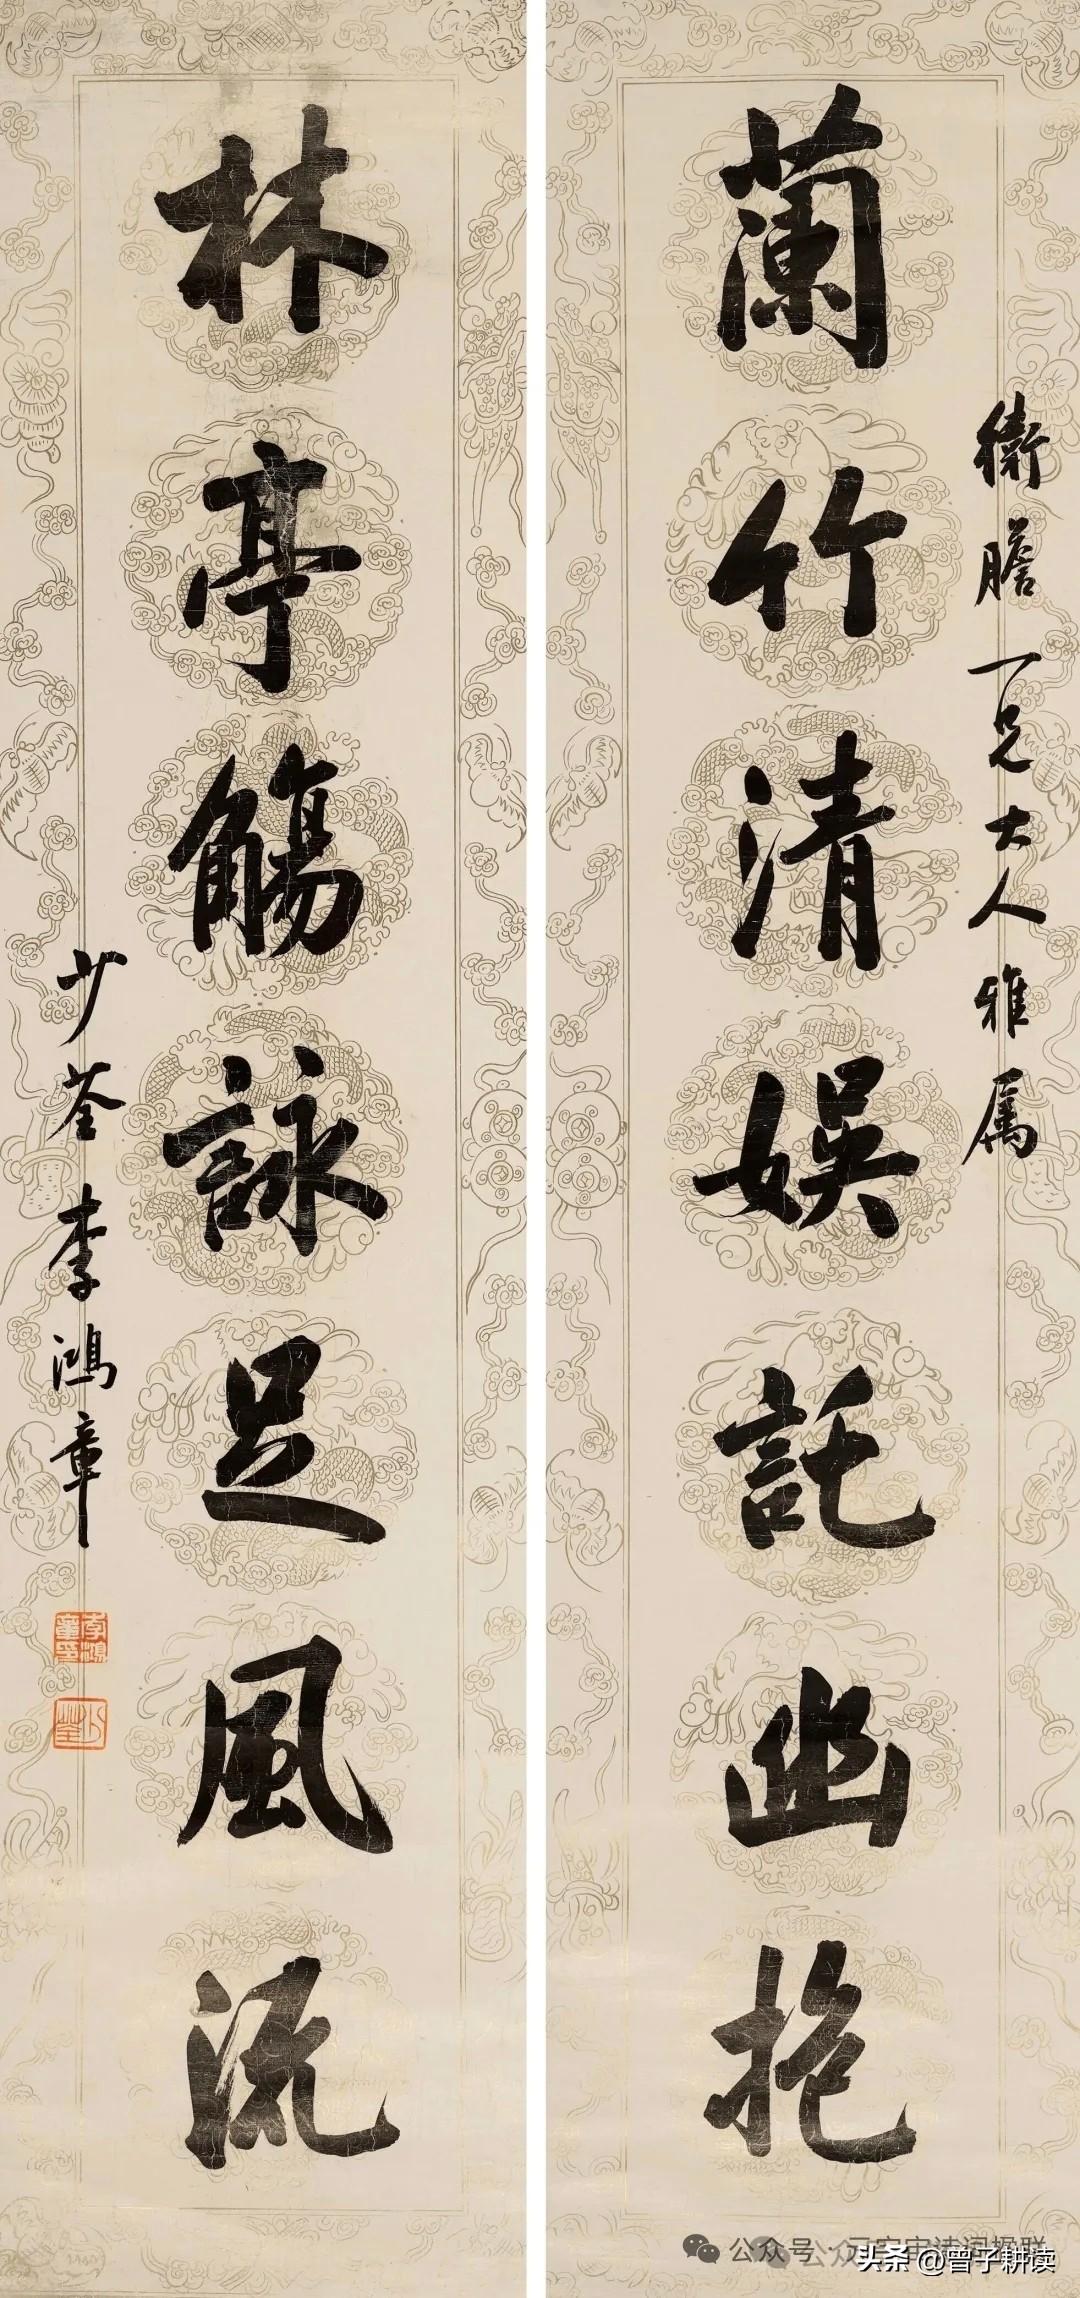 衡瞻一兄大人雅属
蘭竹清娛託幽抱
林亭觴詠足風流
少荃李鴻章
李鴻章印
少荃
公众号
头条 @曾子耕读